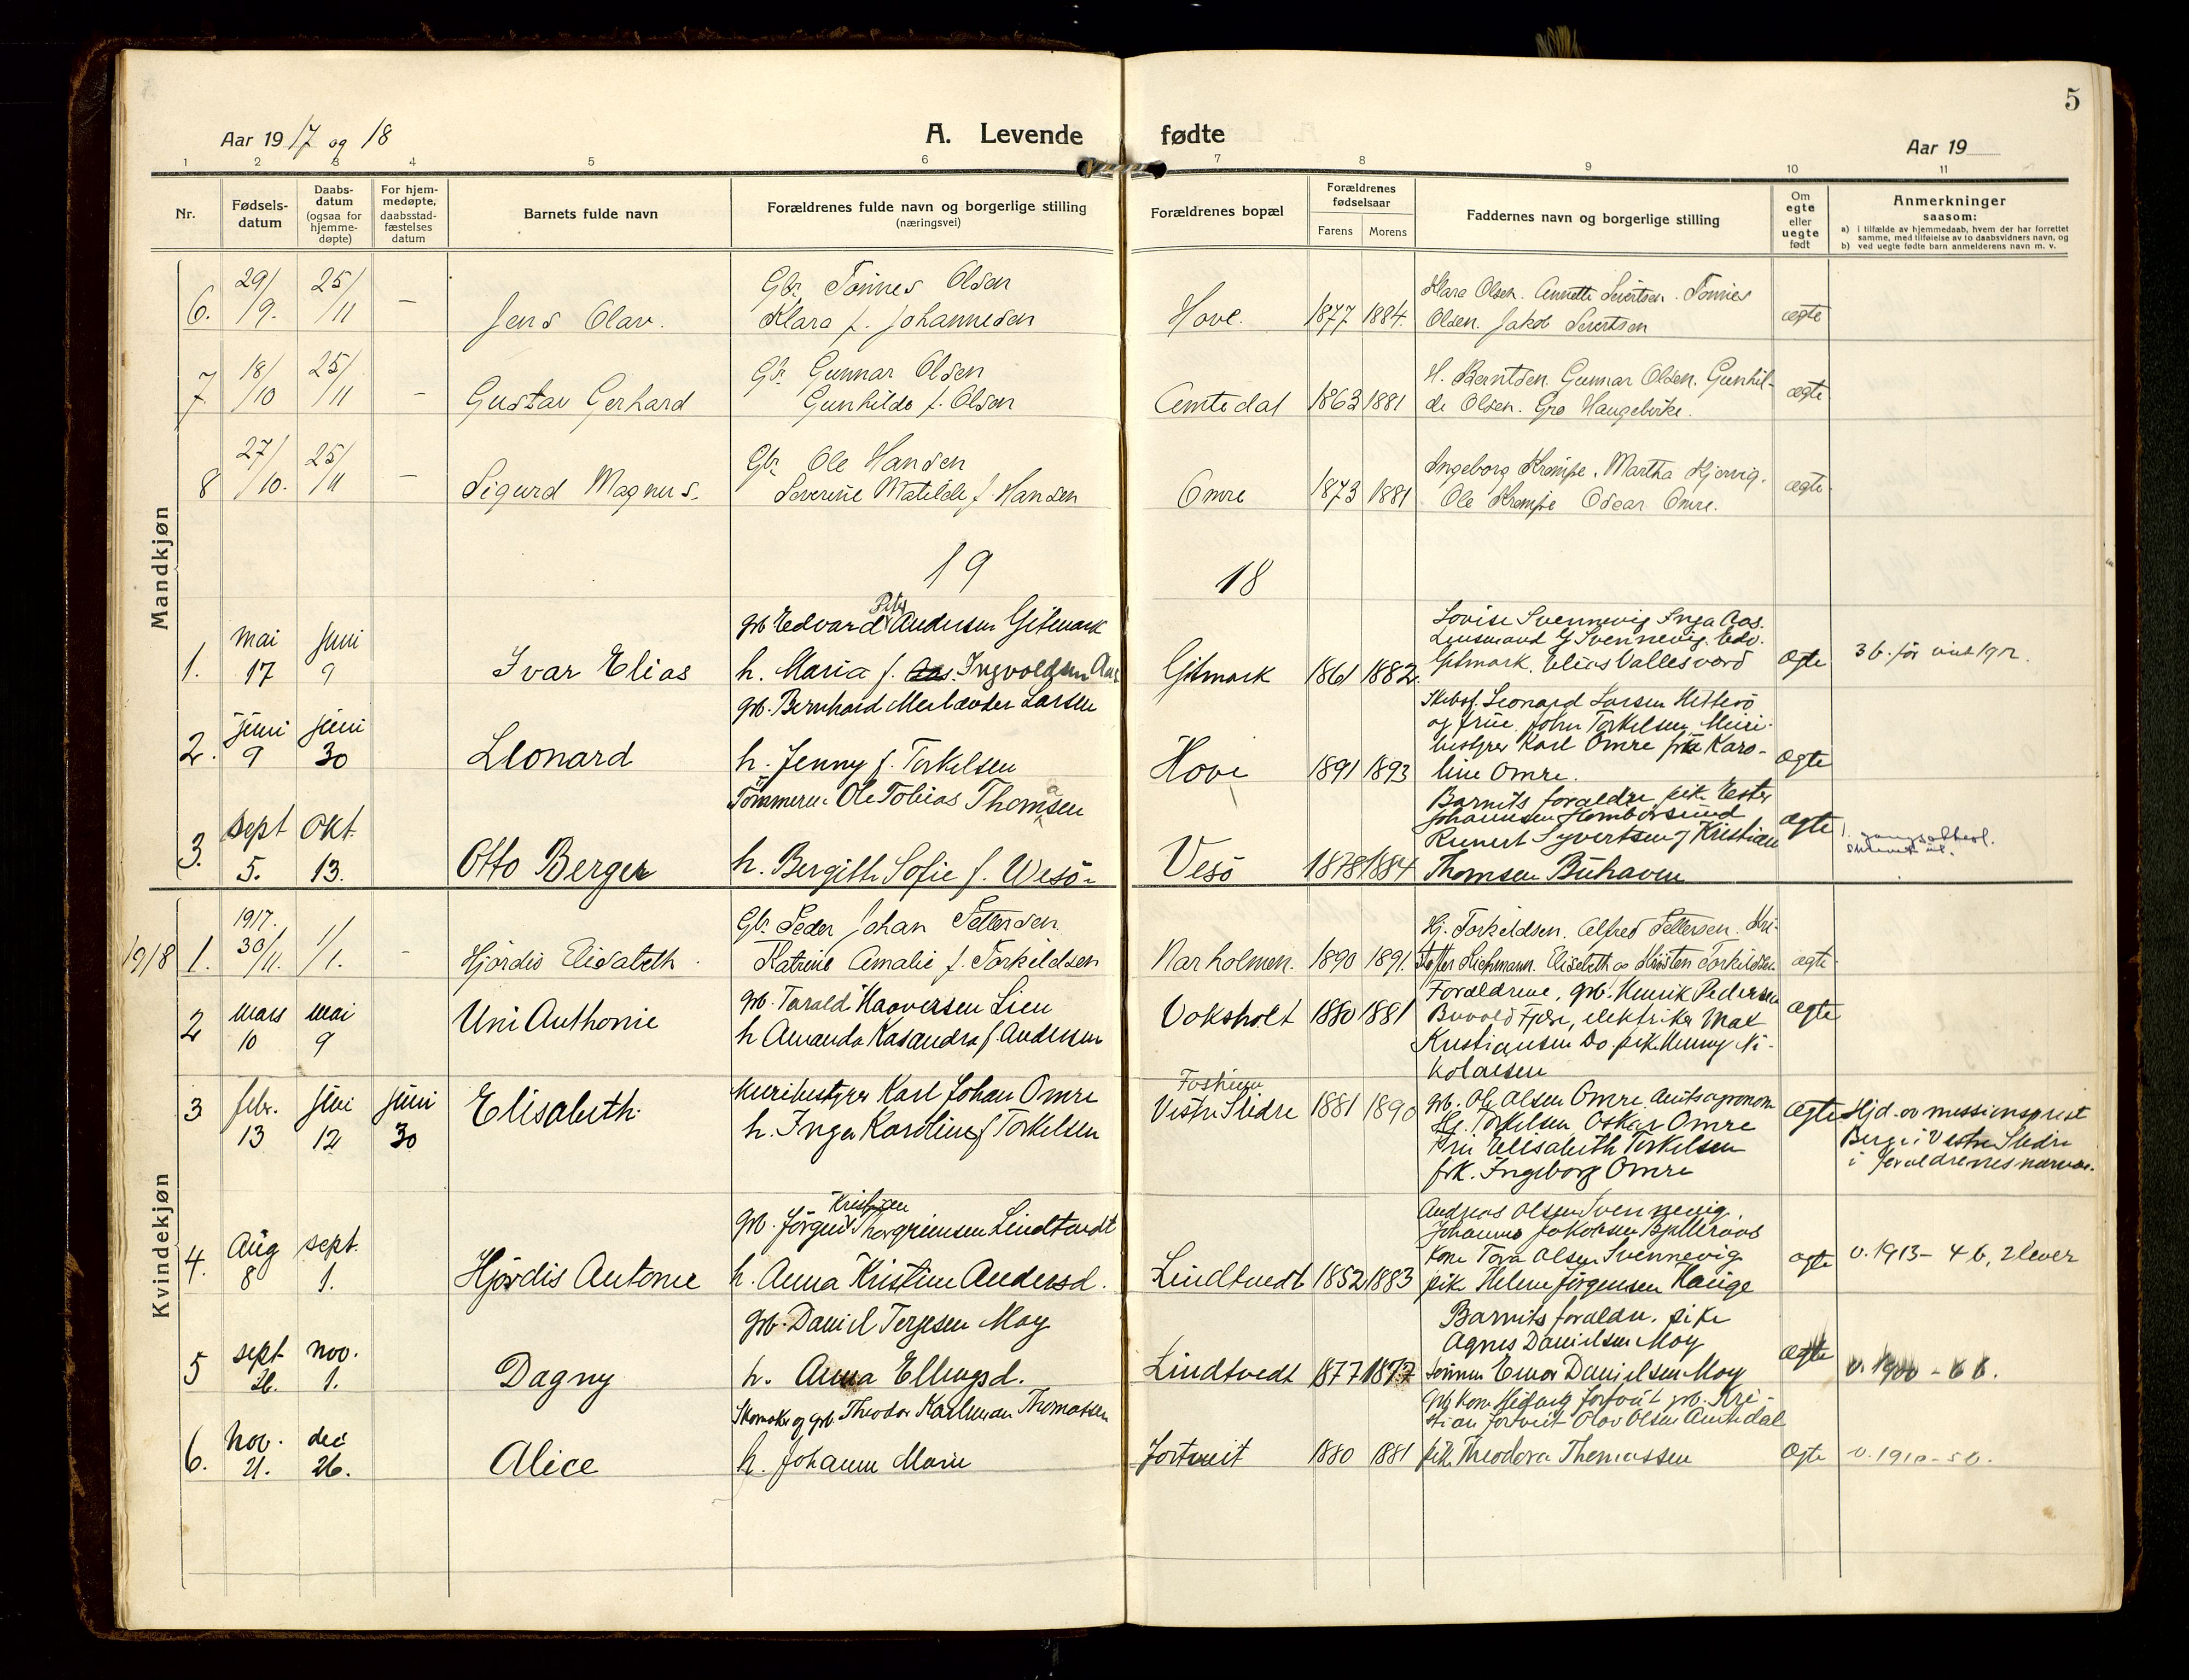 5
Aar 1917 og 18
A. Levende fødte
Aar 19
1 2 3 4 5 6 7 8 9 10 11
Nr.
Fødsels-
datum
Daabs-
datum
(ogsaa for
hjemme-
døpte)
For hjem-
medøpte,
daabsstad-
fæstelses
datum
Barnets fulde navn
Forældrenes fulde navn og borgerlige stilling
(næringsvei)
Forældrenes bopæl
Forældrenes
fødselsaar
Farens Morens
Faddernes navn og borgerlige stilling
Om
egte
eller
uegte
født
Anmerkninger
saasom:
a) i tilfælde av hjemmedaab, hvem der har forrettet
samme, med tilføielse av to daabsvidners navn, og
b) ved uegte fødte barn anmelderens navn m. v.
Mandkjøn
6. 29/9. 25/11 – Jens Olav.
Gbr. Tønnes Olsen
Klara f. Johannesen
Hove. 1877 1884.
Klara Olsen. Annette Sivertsen. Tønnes
Olsen. Jakob Sivertsen
ægte
7 18/10 25/11 – Gustav Gerhard
Gbr. Gunnar Olsen
Gunhilde f. Olsen
Amtedal 1863 1881
H. Berntsen. Gunnar Olsen. Gunhil-
de Olsen. Gro
ægte
8 27/10. 25/11 – Sigurd Magnus.
Gbr. Ole Hansen
Severine Matilde f. Hansen
Omre 1873 1881
Ingeborg Krempe. Martha
Ole Krempe Oscar Omre.
ægte
19 18
1. Mai 17 Juni 9 Ivar Elias
grb Edvard Peter Andersen Gitmark
h. Maria f. Aas. Ingvoldsen Aas
Gitmark 1861 1882.
Lovise Svennevig Inga Aas.
Lensmand G Svennevig. Edv.
Gitmark. Elias Vallesværd
Ægte
3 b. før
2. juni 9 juni 30 Leonard
grb. Bernhard Larsen
h. Jenny f. Torkelsen
Hove 1891 1893
Leonard Larsen Hetterö
og frue, John Torkelsen, Meieri-
bestyrer Karl Omre frk Karo-
line Omre.
Ægte
3. sept 5. Okt. 13. Otto Berger
Tömmerm. Ole Tobias Thomasen
h. Bergithe Sofie f. Wesö-
Vesö 1878 1884
Barnets foraldre pike Ester
Johannesen Homborsund
Reinert Syvertsen, Kristian
Thomsen Buhaven
Ægte
Kvindekjøn
1918 1. 1917. 30/11. 1/1. - Hjördis Elisabeth.
Gbr. Peder Johan Pettersen.
Katrine Amalie f. Torkildsen
Narholmen. 1890 1891.
Hj. Torkildsen. Alfred Pettersen. Kri-
stoffer Elisabeth og Torkildsen
ægte
2 mars 10 mai 9 Uni Anthonie
grb. Tarald Haaversen Lien
h Amanda Kasandra f. Andersen
Voksholt 1880 1881
Foraldrene, grb. Henrik Pedersen
Buvold Fjære, elektriker Max
Kristiansen Do. pike Henny Ni-
kolaisen
Ægte
3 febr. 13 juni 12 juni 30 Elisabeth
Meieribestyrer Karl Johan Omre
h. Inga Karoline f Torkelsen
Vestre Slidre 1881 1890
grb. Ole Olsen Omre, Amtsagronom
Hj. Torkelsen Oskar Omre
Fru Elisabeth Torkelsen
frk. Ingeborg Omre
Ægte
Hjd. av missionsprest
Berge i Vestre Slidre
i foraldrenes nærvær.
4. Aug 8 sept. 1. Hjördis Antonie
grb. Jörgen Kristian Thorgrimsen Lindtvedt
h. Anna Kristine Andersd.
Lindtvedt 1852 1883
Andreas Olsen Svennevig.
Johannes Jakobsen
kone Tora Olsen Svennevig
pike Helene Jörgensen Hauge
Ægte
v. 1913 – 4 b, 2 lever
5 sept 26. nov. 1. Dagny
grb. Daniel Terjesen Moy
h. Anna Ellingsd.
Lindtvedt 1877 1877
Barnets foraldre. pike
Agnes Danielsen Moy
sönnen Einar Danielsen Moy
Ægte
v. 1900 – 6 b.
6. Nov. 21. dec 26. Alice
Skomaker og grb Theodor Karluman Thomassen
h. Johanne Marie
Jortveit 1880 1881
Grb kone Hedvig Jortveit grb. Kri-
stian Jortveit Olav Olsen Amtedal
pike Theodora Thomassen
Ægte
v. 1910 – 5 b.